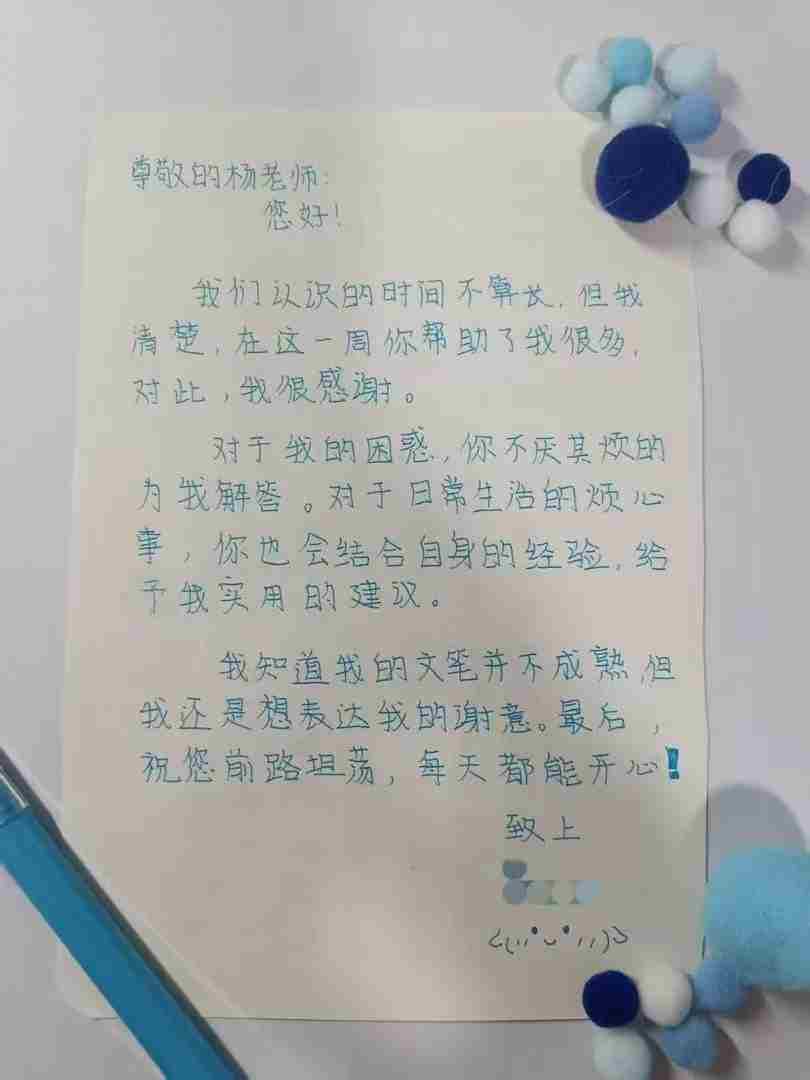 尊敬的杨老师：
您好！
我们认识的时间不算长，但我
清楚，在这一周你帮助了我很多，
对此，我很感谢。
对于我的困惑，你不厌其烦的
为我解答。对于日常生活的烦心
事，你也会结合自身的经验，给
予我实用的建议。
我知道我的文笔并不成熟，但
我还是想表达我的谢意。最后，
祝您前路坦荡，每天都能开心！
致上